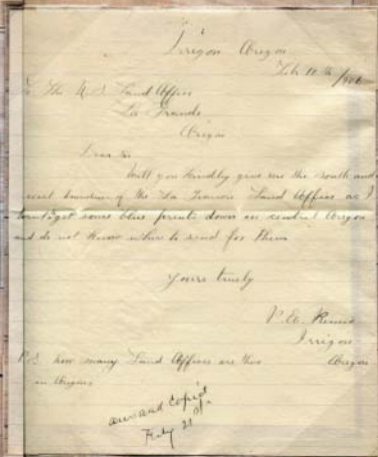 Irrigon Oregon
Feb 10th /906
To The U.S. Land Office
La Grande
Oregon
Dear Sir
Will you kindly give me the south and
west boundary of the La Grande Land Office as I
want to get some blue prints down in central Oregon
and do not know where to send for them
yours truely
Irrigon
Oregon
P.S. how many Land Offices are there
in Oregon
ans and copied
21